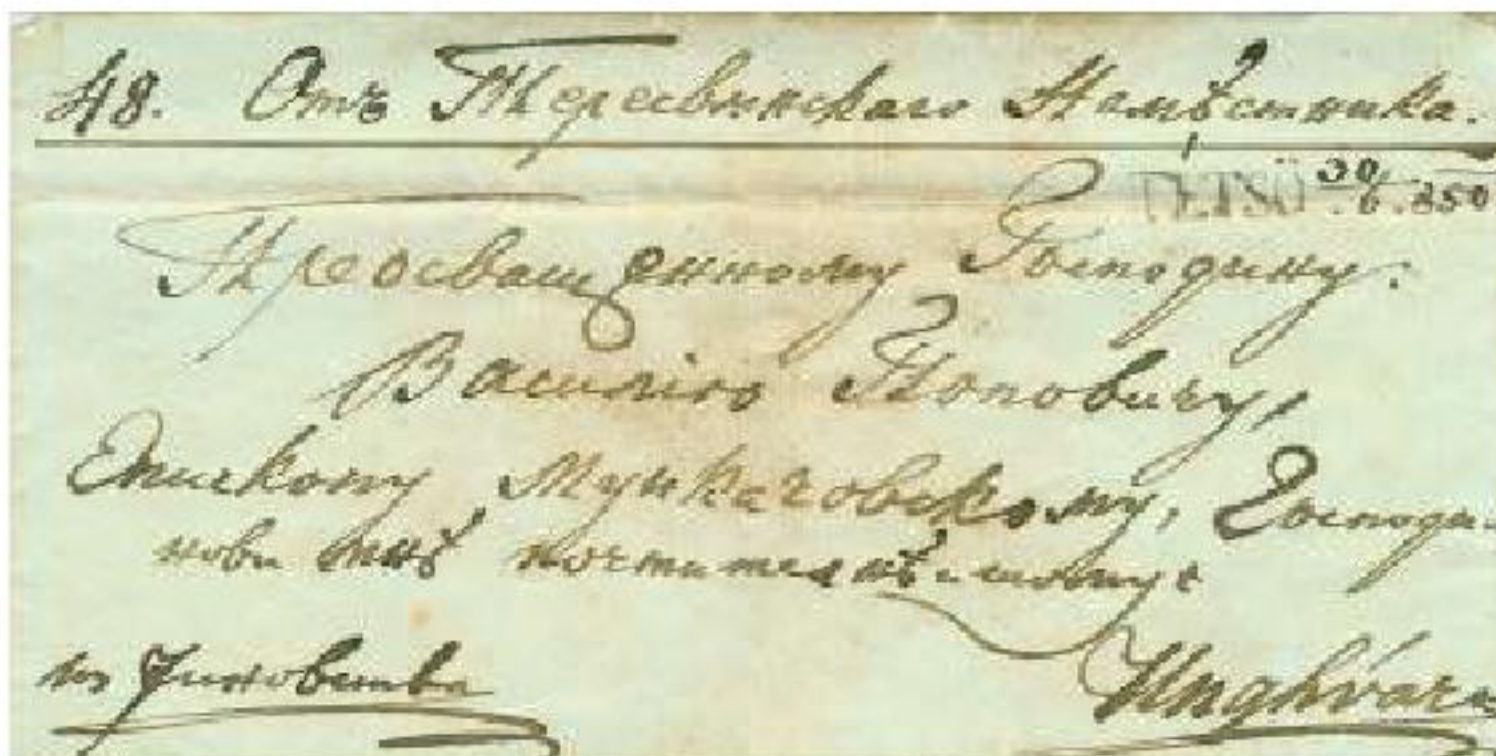 48. Отъ Тересвинскаго Намѣстника.
TÉTSŐ 30/6.850
Преосвященному Господину.
Василію Поповичу,
Епископу Мункачовскому, Господи-
нови мнѣ почтителнѣйшому
Unghvár